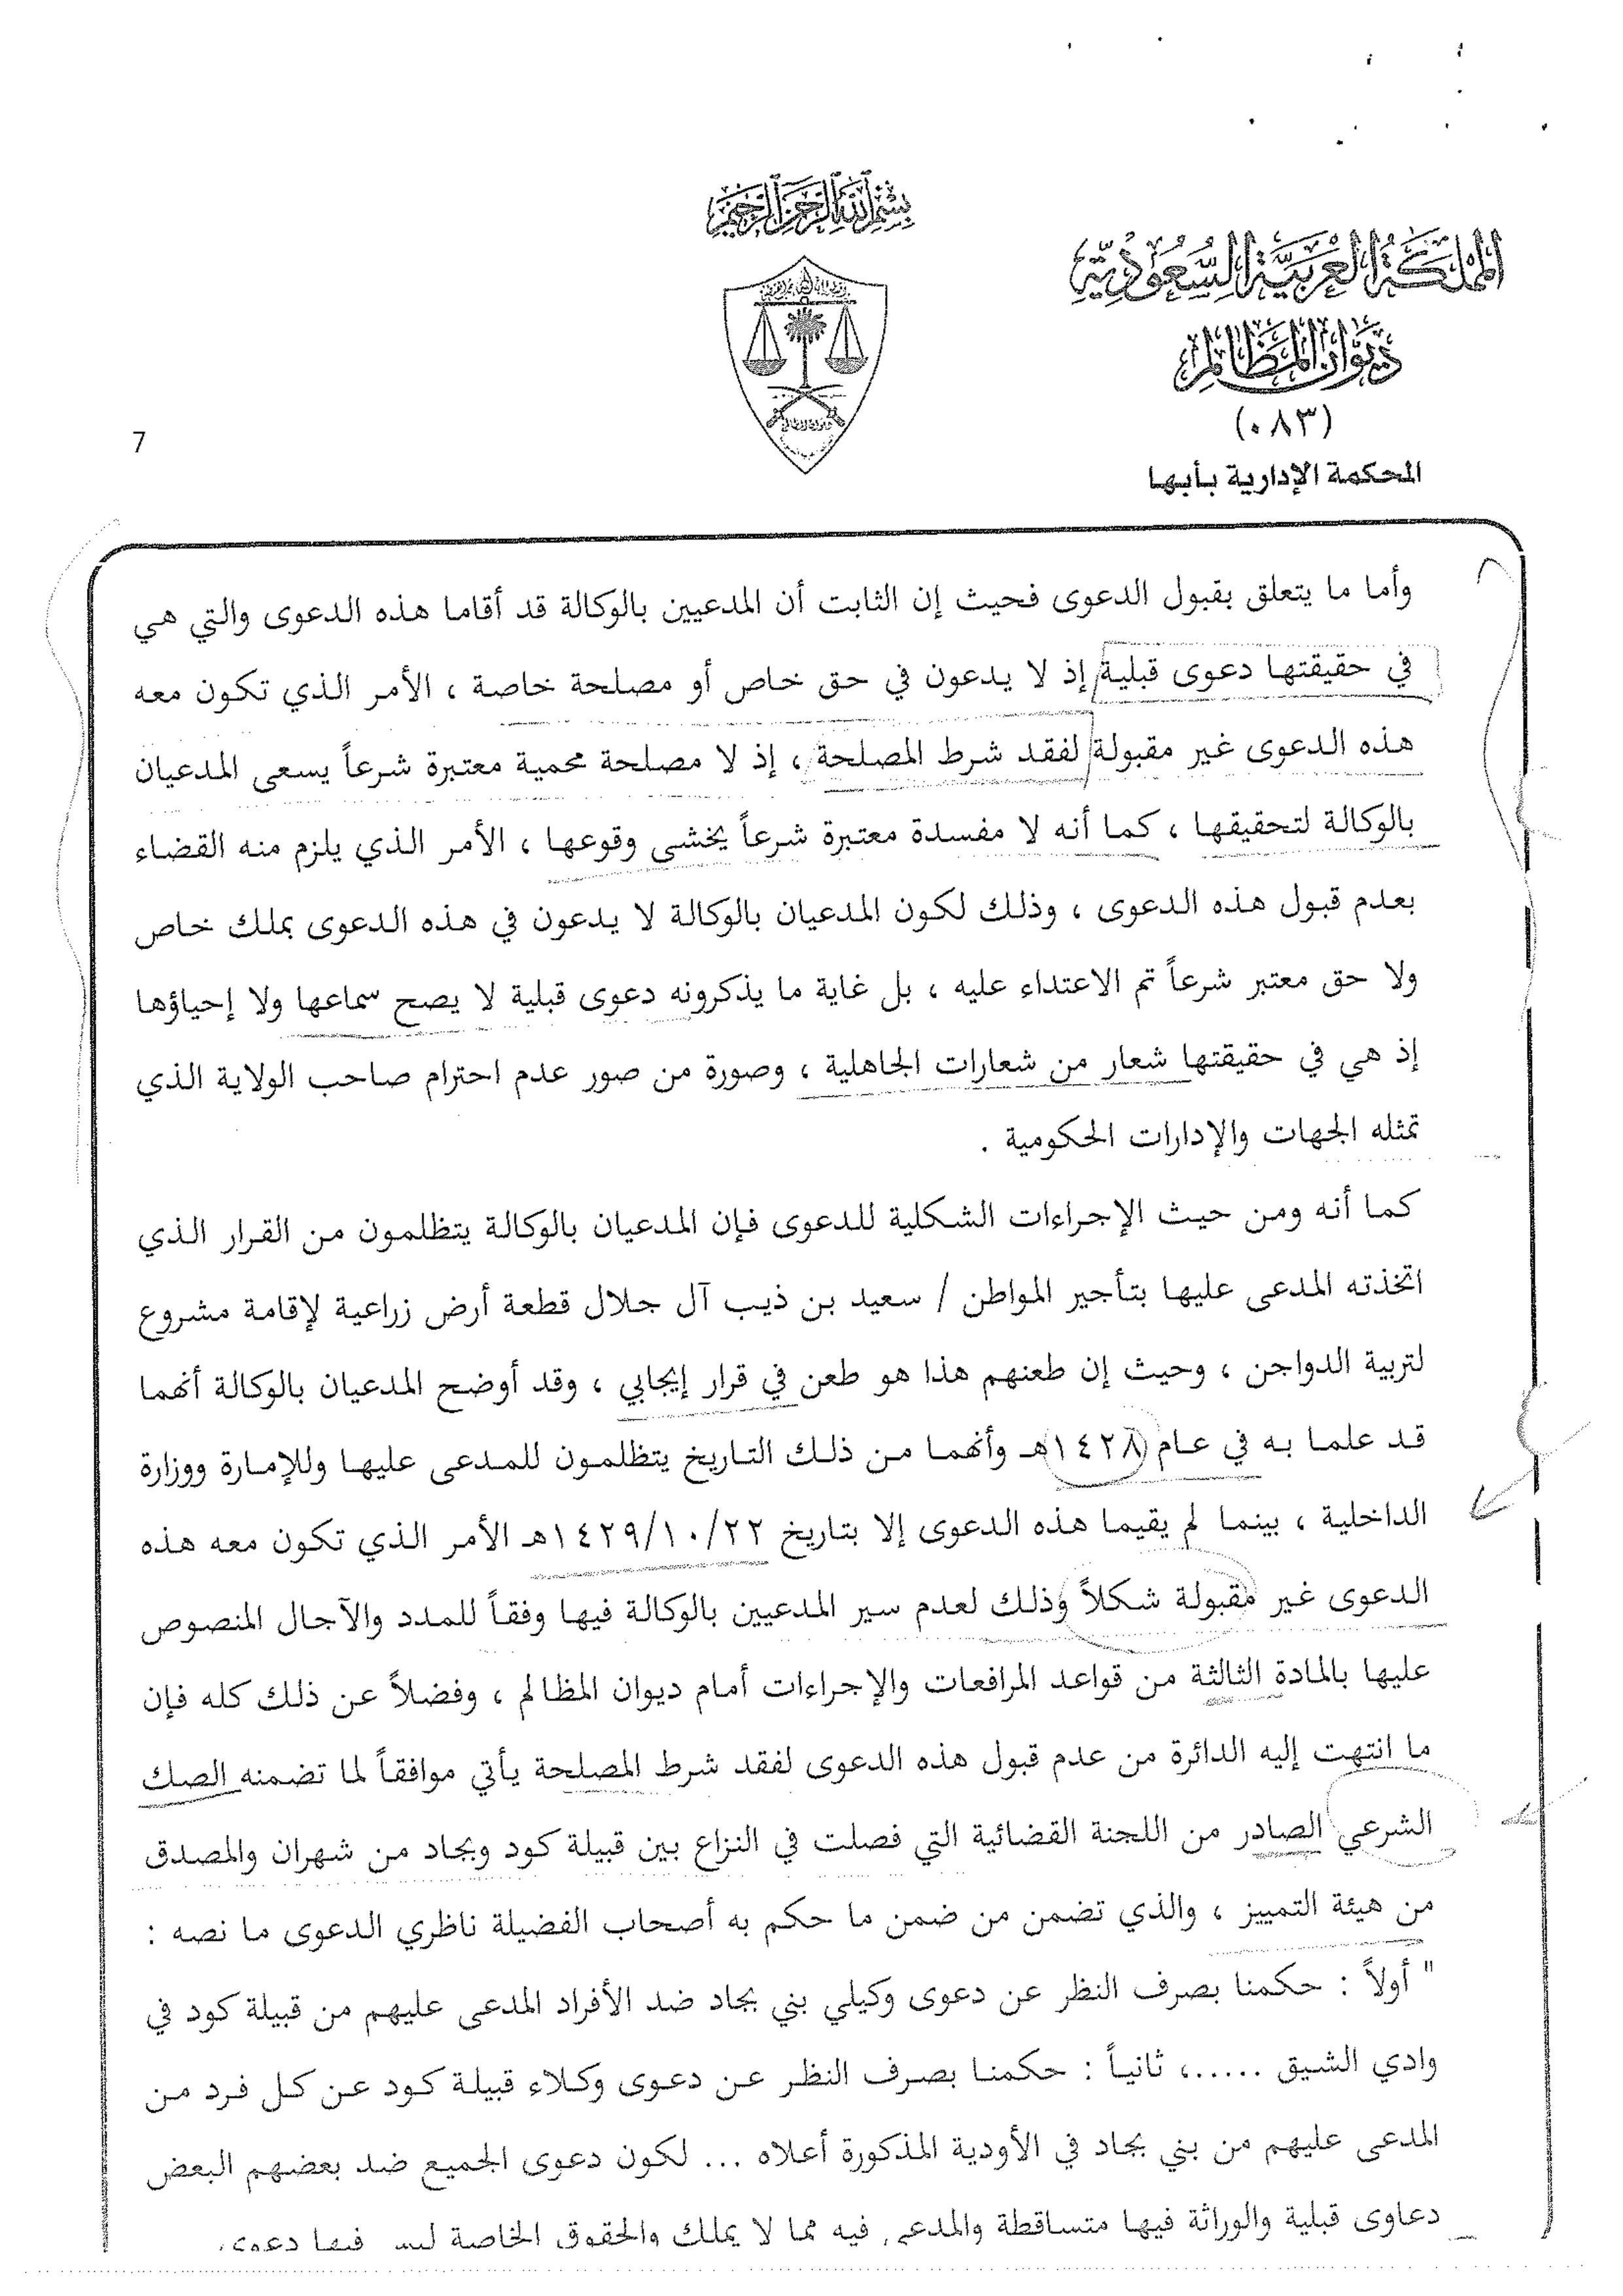 بسم الله الرحمن الرحيم
المملكة العربية السعودية
ديوان المظالم
(٠٨٣)
المحكمة الإدارية بأبها
7
وأما ما يتعلق بقبول الدعوى فحيث إن الثابت أن المدعيين بالوكالة قد أقاما هذه الدعوى والتي هي
في حقيقتها دعوى قبلية إذ لا يدعون في حق خاص أو مصلحة خاصة ، الأمر الذي تكون معه
هذه الدعوى غير مقبولة لفقد شرط المصلحة ، إذ لا مصلحة محمية معتبرة شرعاً يسعى المدعيان
بالوكالة لتحقيقها ، كما أنه لا مفسدة معتبرة شرعاً يخشى وقوعها ، الأمر الذي يلزم منه القضاء
بعدم قبول هذه الدعوى ، وذلك لكون المدعيان بالوكالة لا يدعون في هذه الدعوى بملك خاص
ولا حق معتبر شرعاً تم الاعتداء عليه ، بل غاية ما يذكرونه دعوى قبلية لا يصح سماعها ولا إحياؤها
إذ هي في حقيقتها شعار من شعارات الجاهلية ، وصورة من صور عدم احترام صاحب الولاية الذي
تمثله الجهات والإدارات الحكومية .
كما أنه ومن حيث الإجراءات الشكلية للدعوى فإن المدعيان بالوكالة يتظلمون من القرار الذي
اتخذته المدعى عليها بتأجير المواطن / سعيد بن ذيب آل جلال قطعة أرض زراعية لإقامة مشروع
لتربية الدواجن ، وحيث إن طعنهم هذا هو طعن في قرار إيجابي ، وقد أوضح المدعيان بالوكالة أنهما
قد علما به في عام ١٤٢٨هـ وأنهما من ذلك التاريخ يتظلمون للمدعى عليها وللإمارة ووزارة
الداخلية ، بينما لم يقيما هذه الدعوى إلا بتاريخ ١٤٢٩/١٠/٢٢هـ الأمر الذي تكون معه هذه
الدعوى غير مقبولة شكلاً وذلك لعدم سير المدعيين بالوكالة فيها وفقاً للمدد والآجال المنصوص
عليها بالمادة الثالثة من قواعد المرافعات والإجراءات أمام ديوان المظالم ، وفضلاً عن ذلك كله فإن
ما انتهت إليه الدائرة من عدم قبول هذه الدعوى لفقد شرط المصلحة يأتي موافقاً لما تضمنه الصك
الشرعي الصادر من اللجنة القضائية التي فصلت في النزاع بين قبيلة كود وبجاد من شهران والمصدق
من هيئة التمييز ، والذي تضمن من ضمن ما حكم به أصحاب الفضيلة ناظري الدعوى ما نصه :
" أولاً : حكمنا بصرف النظر عن دعوى وكيلي بني بجاد ضد الأفراد المدعى عليهم من قبيلة كود في
وادي الشيق ......، ثانياً : حكمنا بصرف النظر عن دعوى وكلاء قبيلة كود عن كل فرد من
المدعى عليهم من بني بجاد في الأودية المذكورة أعلاه ... لكون دعوى الجميع ضد بعضهم البعض
دعاوى قبلية والوراثة فيها متساقطة والمدعى فيه مما لا يملك والحقوق الخاصة ليس فيها دعوى